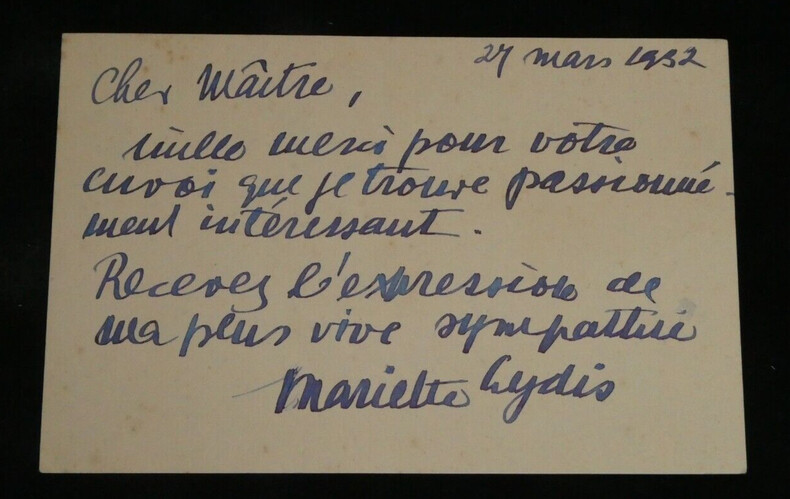 27 mars 1932
Cher Maître,
mille merci pour votre
envoi que je trouve passionné-
ment intéressant.
Recevez l'expression de
ma plus vive sympathie
Mariette Lydis